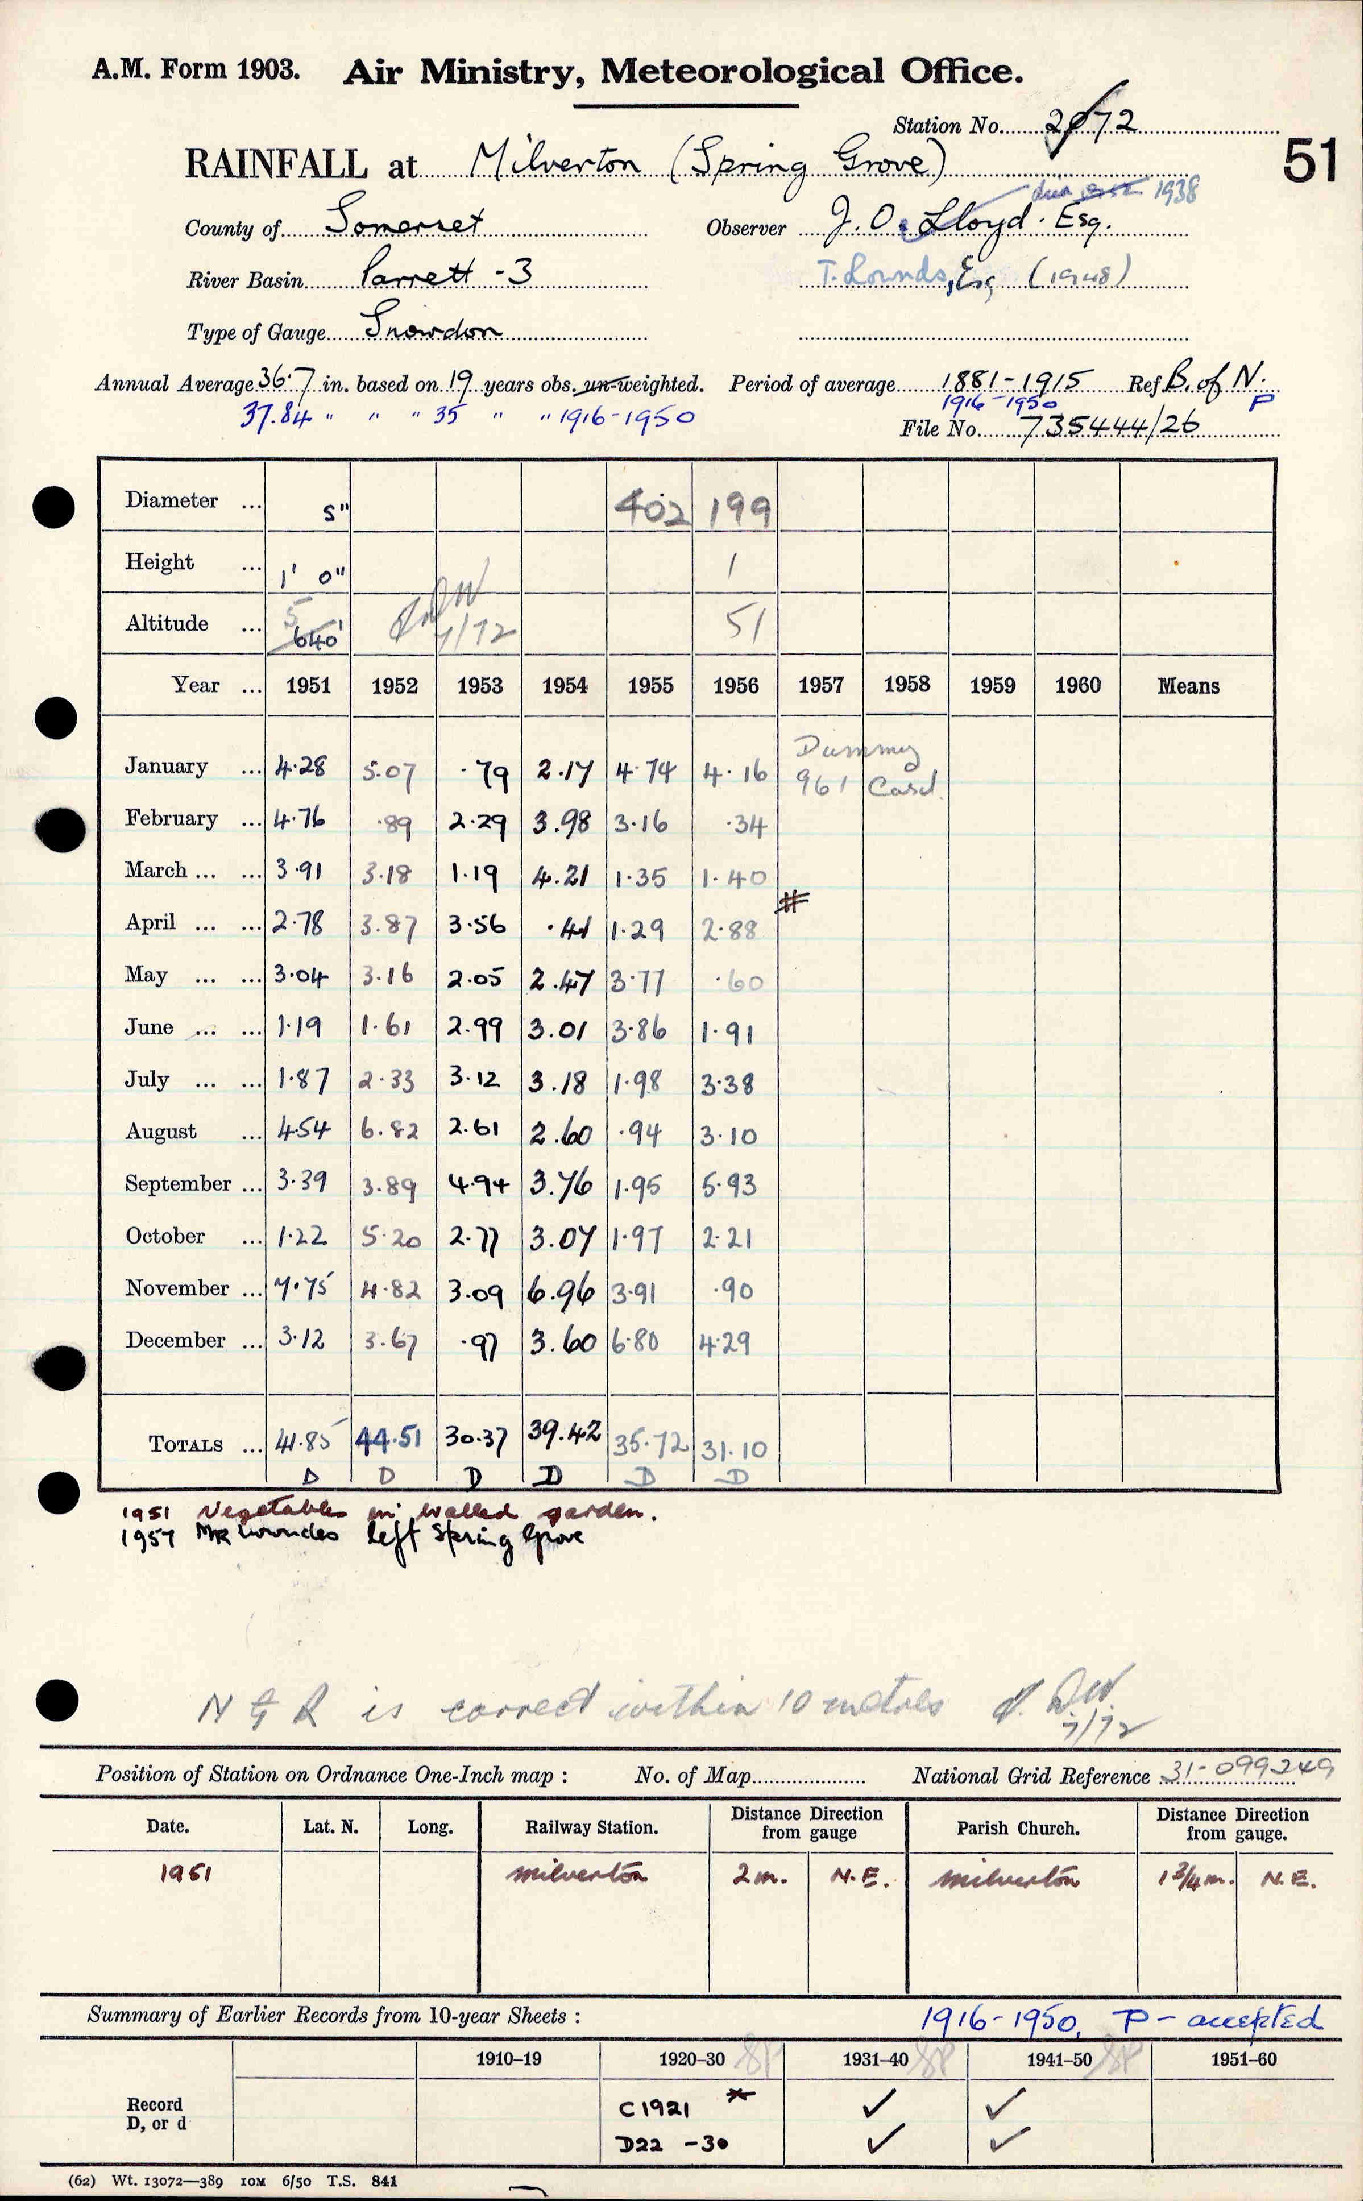 A.M. Form 1903. Air Ministry, Meteorological Office.
Station No. 2072
51
RAINFALL at Milverton (Spring Grove)
1938
County of Somerset Observer J. O. Lloyd. Esq.
River Basin Parrett - 3 T. Lownds, Esq (1948)
Type of Gauge Snowdon
Annual Average 36.7 in. based on 19 years obs. un-weighted. Period of average 1881-1915 Ref B. of N.
37.84 " " " 35 " " 1916-1950 1916-1950 P
File No. 735444/26
Diameter ... 5" 402 199
Height ... 1' 0" 1
Altitude ... 5 640' 7/72 51
Year ... 1951 1952 1953 1954 1955 1956 1957 1958 1959 1960 Means
January ... 4.28 5.07 .79 2.17 4.74 4.16 Dummy 961 Card
February ... 4.76 .89 2.29 3.98 3.16 .34
March ... ... 3.91 3.18 1.19 4.21 1.35 1.40
#
April ... ... 2.78 3.87 3.56 .41 1.29 2.88
May ... ... 3.04 3.16 2.05 2.47 3.77 .60
June ... ... 1.19 1.61 2.99 3.01 3.86 1.91
July ... ... 1.87 2.33 3.12 3.18 1.98 3.38
August ... 4.54 6.82 2.61 2.60 .94 3.10
September ... 3.39 3.89 4.94 3.76 1.95 5.93
October ... 1.22 5.20 2.77 3.07 1.97 2.21
November ... 7.75 4.82 3.09 6.96 3.91 .90
December ... 3.12 3.67 .97 3.60 6.80 4.29
TOTALS ... 41.85 44.51 30.37 39.42 35.72 31.10
D D D D D D
1951 Vegetables in walled garden.
1957 Mr Lowndes left Spring Grove
N G R is correct within 10 metres
7/72
Position of Station on Ordnance One-Inch map : No. of Map National Grid Reference 31-099249
Date. Lat. N. Long. Railway Station. Distance Direction from gauge Parish Church. Distance Direction from gauge.
1951 Milverton 2 m. N.E. Milverton 1 3/4 m. N.E.
Summary of Earlier Records from 10-year Sheets : 1916-1950, P - accepted
1910–19 1920–30 1931–40 1941–50 1951–60
Record C 1921 * ✓ ✓
D, or d D22 -30 ✓ ✓
(62) Wt. 13072—389 10M 6/50 T.S. 841